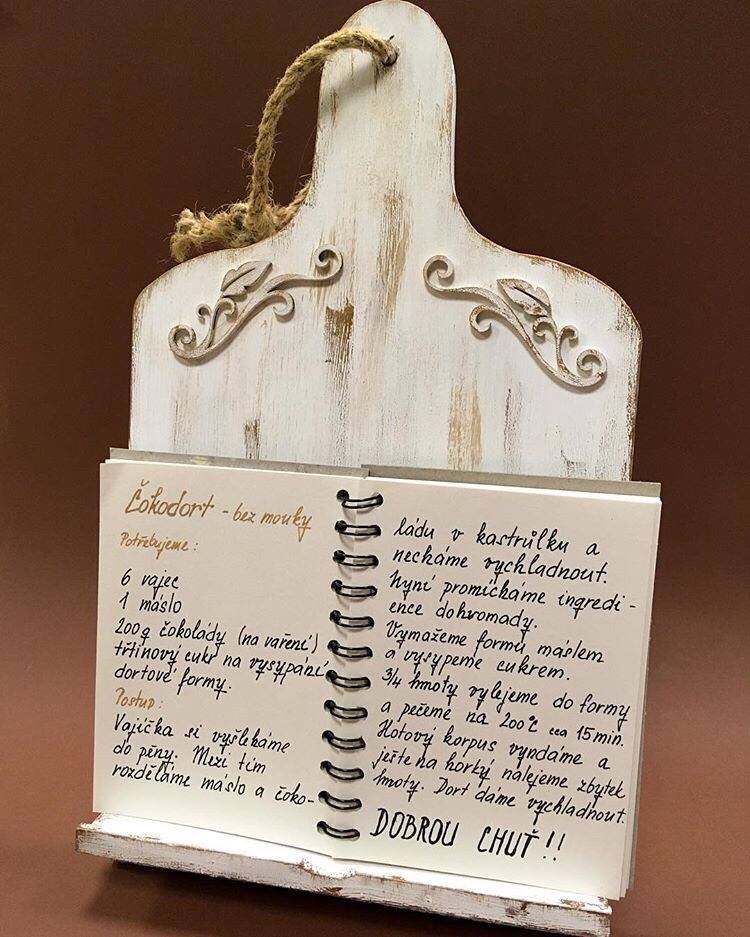 Čokodort - bez mouky
Potřebujeme:
6 vajec
1 máslo
200g čokolády (na vaření)
třtinový cukr na vysypání
dortové formy.
Postup:
Vajíčka si vyšleháme
do pěny. Mezi tím
rozděláme máslo a čoko-
ládu v kastrůlku a
necháme vychladnout.
Nyní promícháme ingredi-
ence dohromady.
Vymažeme formu máslem
a vysypeme cukrem.
3/4 hmoty vylejeme do formy
a pečeme na 200°C cca 15 min.
Hotový korpus vyndáme a
ještě na horký nalejeme zbytek
hmoty. Dort dáme vychladnout.
DOBROU CHUŤ!!